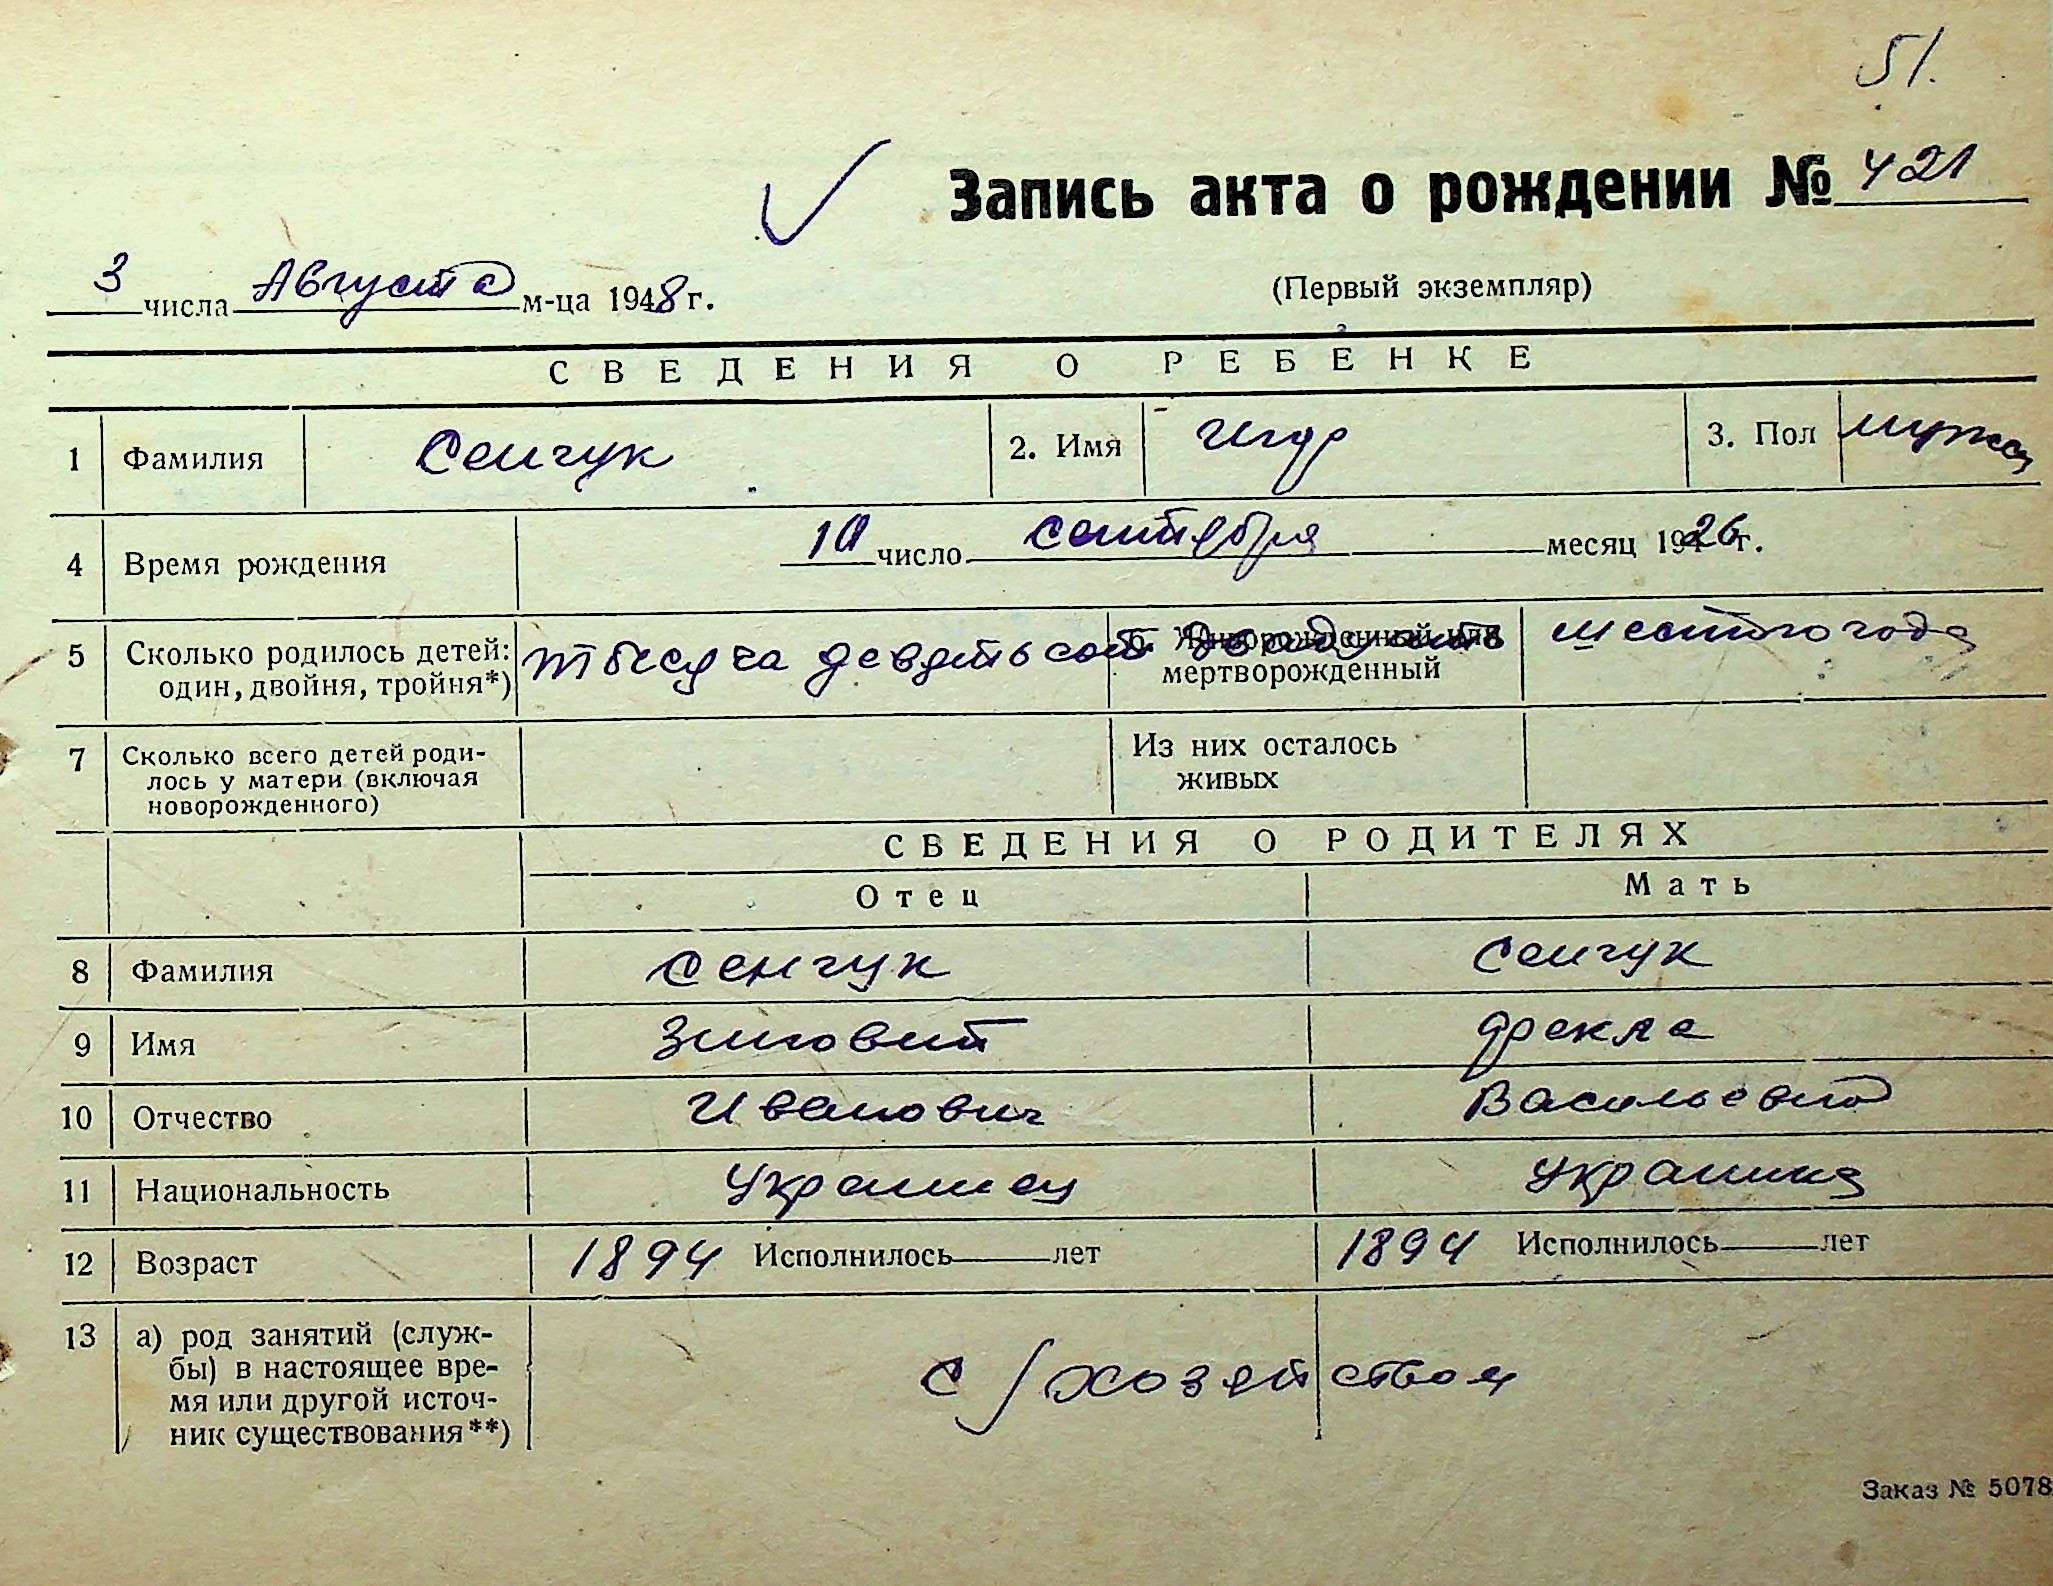 51.
Запись акта о рождении № 421
3 числа Августа м-ца 1948 г.
(Первый экземпляр)
СВЕДЕНИЯ О РЕБЕНКЕ
1 Фамилия Сенчук 2. Имя Игор 3. Пол мужск
4 Время рождения 10 число сентября месяц 1926 г.
5 Сколько родилось детей: один, двойня, тройня*) тысяча девятьсот двадцать шестого года
6. Живорожденный или мертворожденный
7 Сколько всего детей родилось у матери (включая новорожденного) Из них осталось живых
СВЕДЕНИЯ О РОДИТЕЛЯХ
Отец Мать
8 Фамилия Сенчук Сенчук
9 Имя Зиновий
10 Отчество Иванович Васильевна
11 Национальность Украинец Украинка
12 Возраст 1894 Исполнилось лет 1894 Исполнилось лет
13 а) род занятий (службы) в настоящее время или другой источник существования**) с/хозяйством
Заказ № 5078